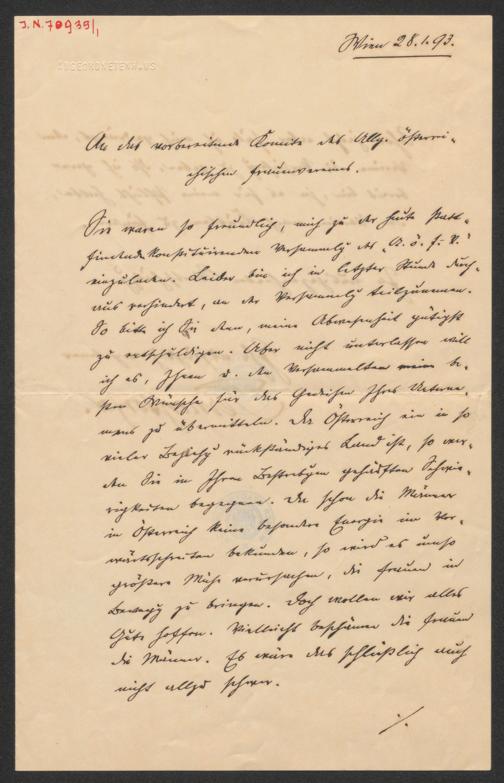 J.N. 70935/1
Wien 28.1.93.
ABGEORDNETENHAUS
An das vorbereitende Komite des Allg. österrei-
chischen Frauenvereins.
Sie waren so freundlich, mich zu der heute statt-
findenden konstituirenden Versammlg des "A. ö. F. V."
einzuladen. Leider bin ich in letzter Stunde durch-
aus verhindert, an der Versammlg teilzunemen.
So bitte ich Sie denn, meine Abwesenheit gütigst
zu entschuldigen. Aber nicht unterlassen will
ich es, Ihnen u. den Versammelten meine be-
sten Wünsche für das Gedeihen Ihres Unterne-
mens zu übermitteln. Da Österreich ein in so
vieler Beziehg rückständiges Land ist, so wer-
den Sie in Ihren Bestrebgen gehäuften Schwie-
rigkeiten begegnen. Da schon die Männer
in Österreich keine besondere Energie im Vor-
wärtsschreiten bekunden, so wird es umso
größere Mühe verursachen, die Frauen in
Bewegg zu bringen. Doch wollen wir alles
Gute hoffen. Vielleicht beschämen die Frauen
die Männer. Es wäre das schließlich auch
nicht allzu schwer.
./.